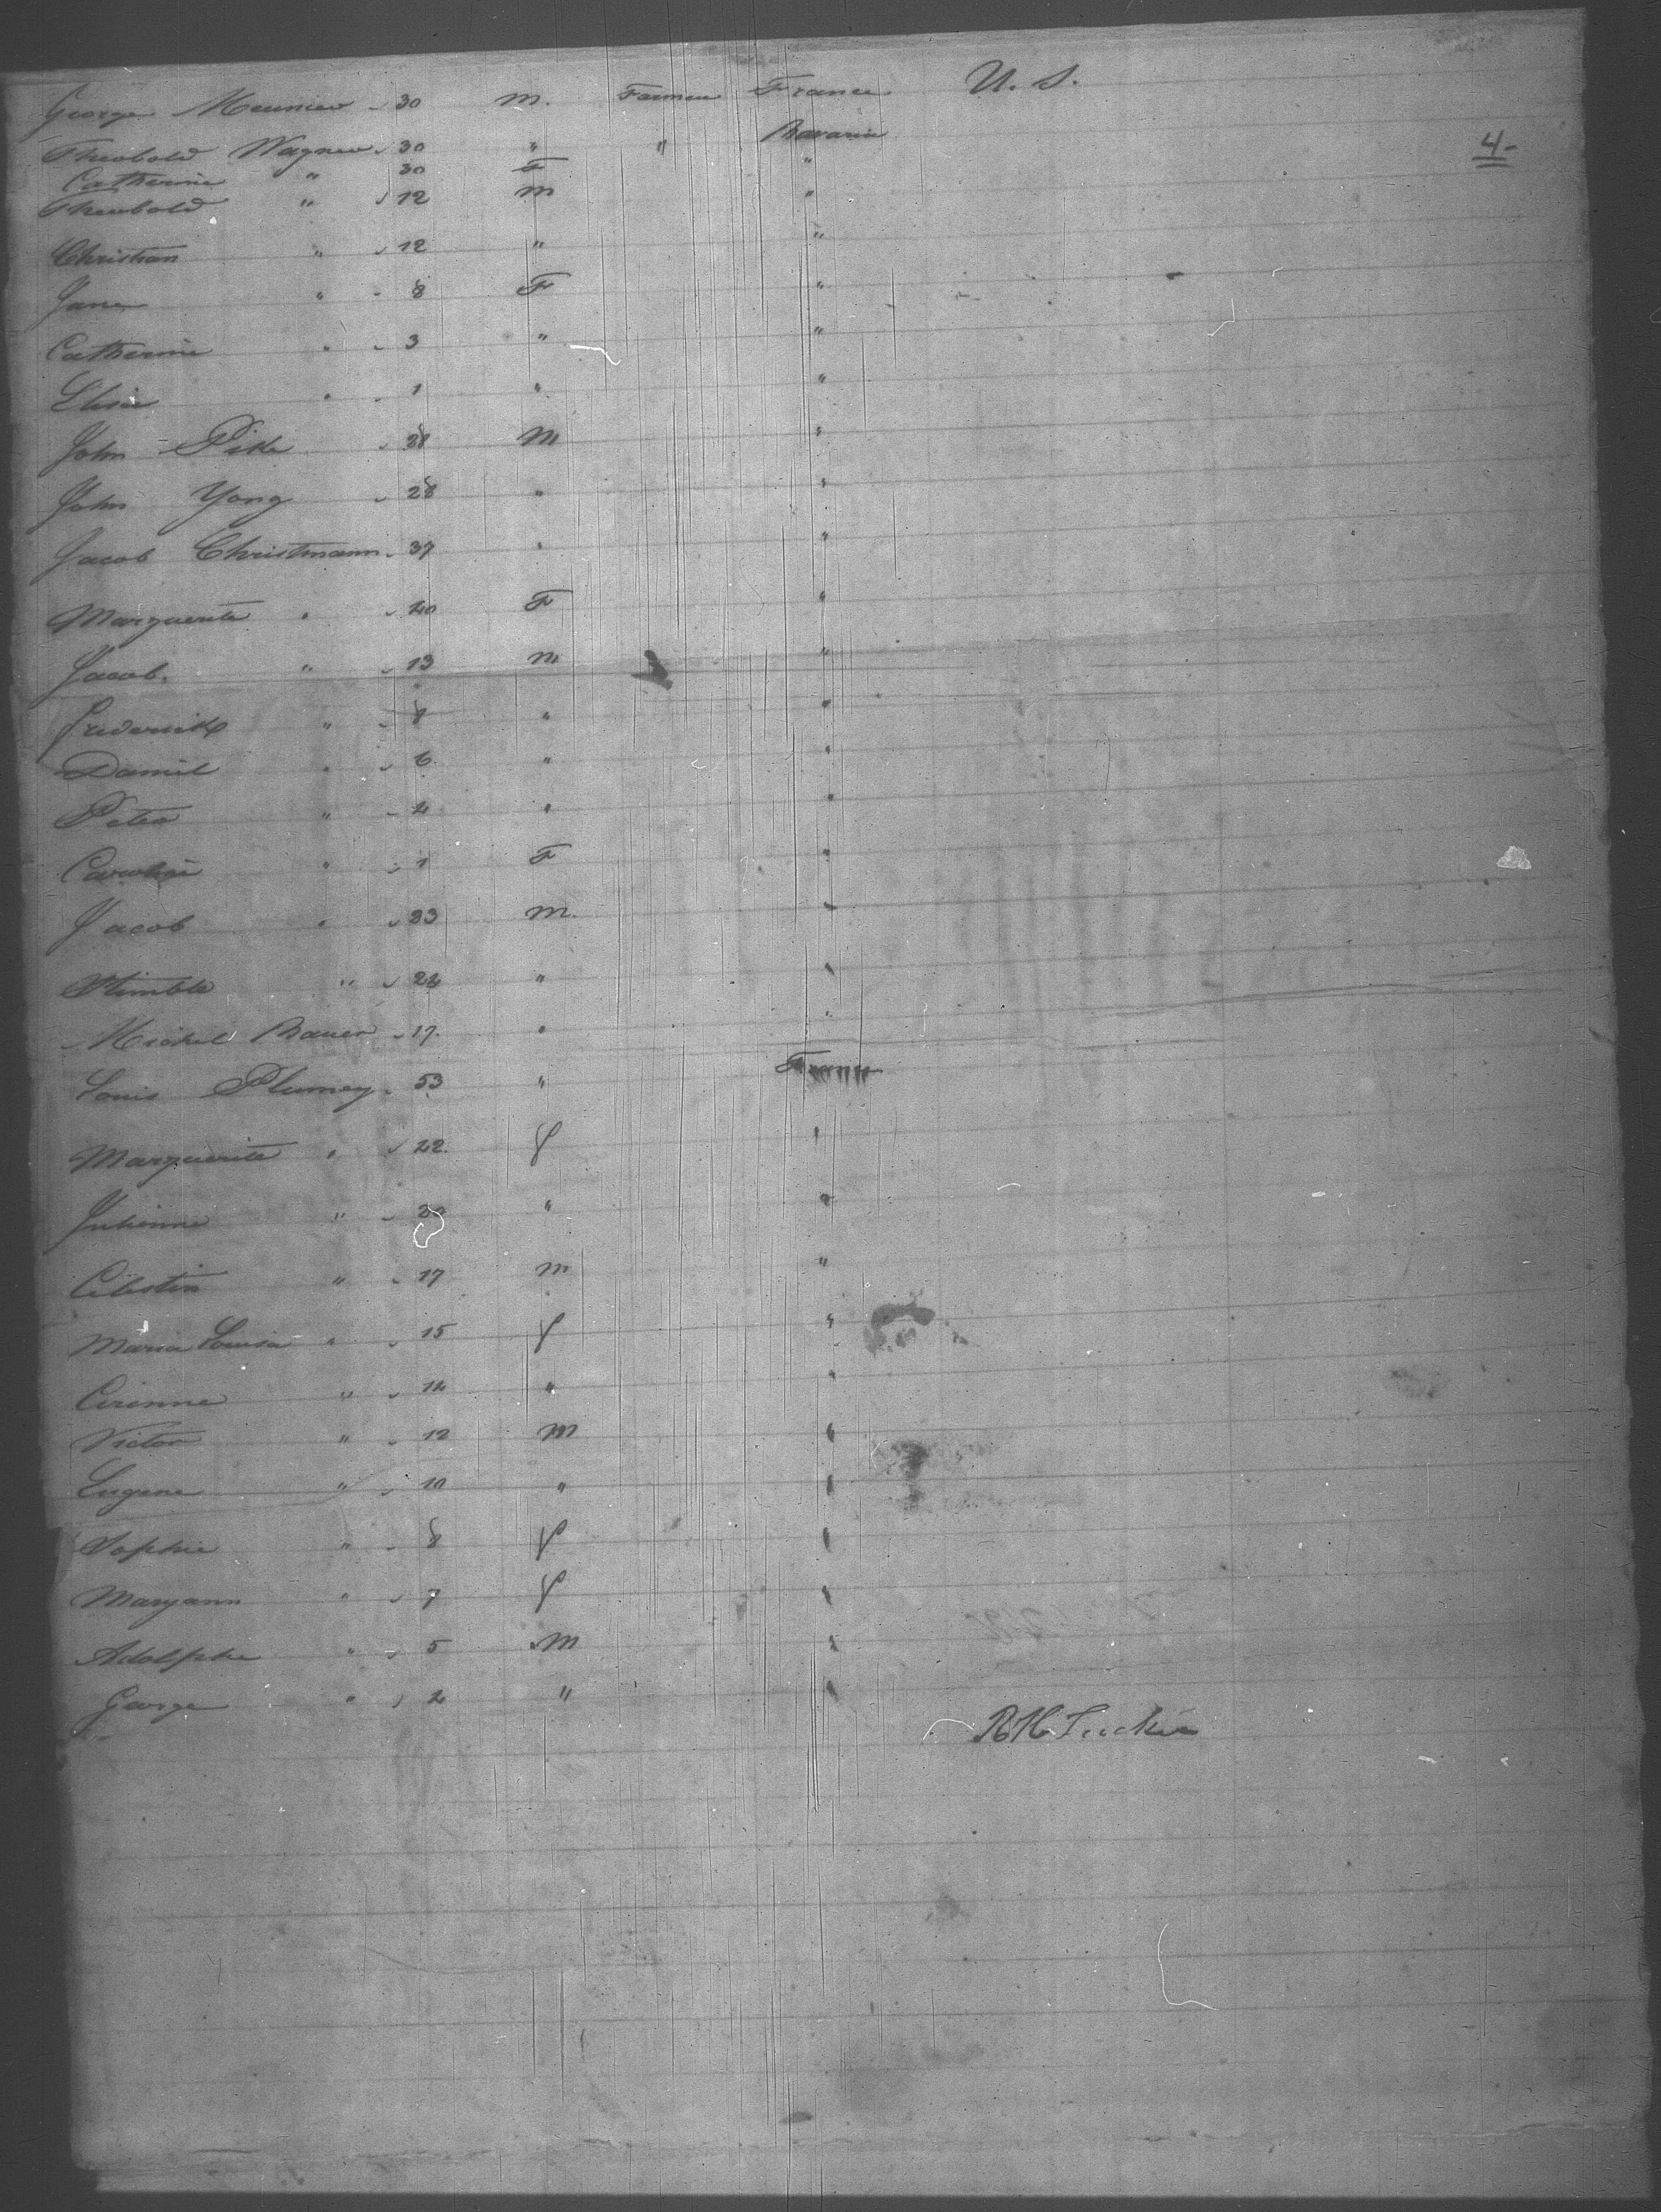 George Meunier 30 M. Farmer France U. S.
4-
Theobold Wagner 30 " " Bavaria
Catherine " 30 F "
Theobold " 12 M "
Christian " 12 " "
Jane " 8 F "
Catherine " 3 " "
Elisa " 1 " "
John Pike 28 M "
John Yong 28 " "
Jacob Christmann 37 " "
Marguerite " 40 F "
Jacob " 13 M "
Frederick " 8 " "
Daniel " 6 " "
Peter " 4 " "
Caroline " 1 F "
Jacob " 33 M. "
" 24 " "
Michel Bauer 17. " "
Louis Plumey 53 " France
Marguerite " 42. f "
Julienne " 20 " "
Celestin " 17 M "
Maria Louisa " 15 f "
Cirinne " 14 " "
Victor " 12 M "
Eugene " 10 " "
Sophie " 8 f "
Maryann " 7 f "
Adolphe " 5 M "
George " 2 " "
R H Tucker